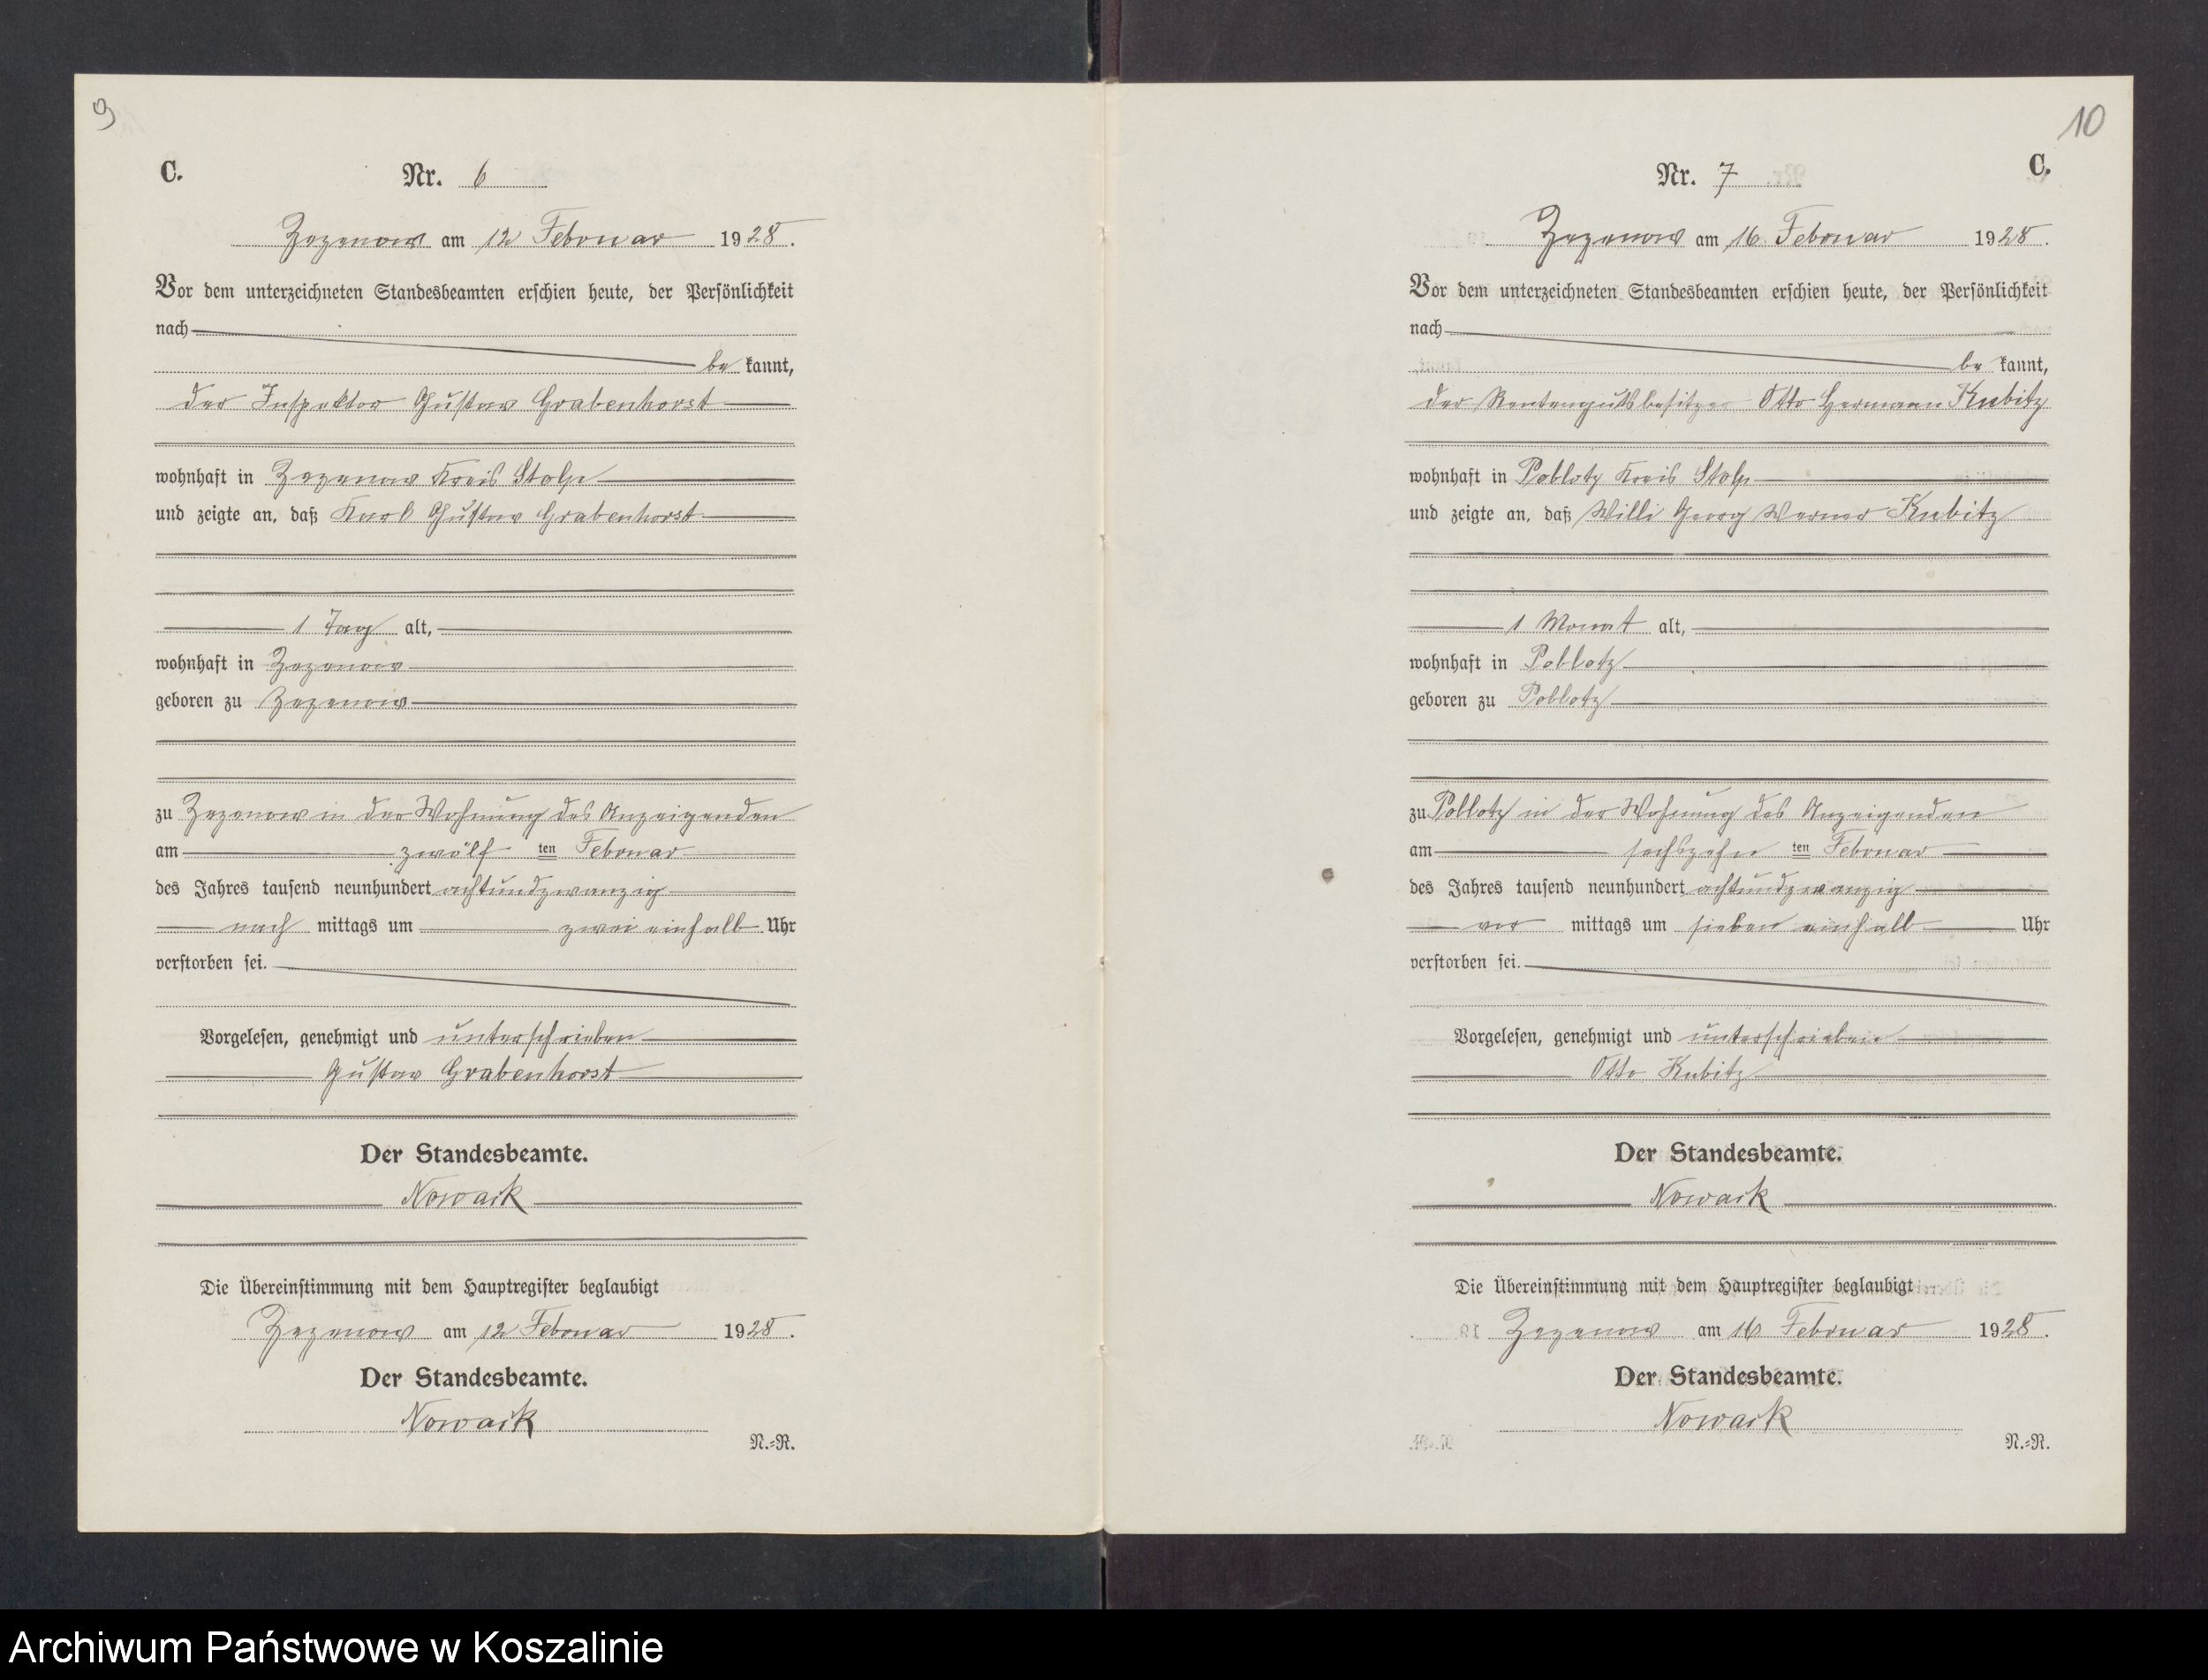 9
C.
Nr. 6
Zezenow am 12 Februar 1928.
Vor dem unterzeichneten Standesbeamten erschien heute, der Persönlichkeit
nach
be kannt,
der Inspektor Gustav Grabenhorst
wohnhaft in Zezenow Kreis Stolp
und zeigte an, daß Karl Gustav Grabenhorst
1 Tag alt,
wohnhaft in Zezenow
geboren zu Zezenow
zu Zezenow in der Wohnung des Anzeigenden
am zwölf ten Februar
des Jahres tausend neunhundert achtundzwanzig
nach mittags um zwei einhalb Uhr
verstorben sei.
Vorgelesen, genehmigt und unterschrieben
Gustav Grabenhorst
Der Standesbeamte.
Nowack
Die Übereinstimmung mit dem Hauptregister beglaubigt
Zezenow am 12 Februar 1928.
Der Standesbeamte.
Nowack
N.=R.
10
C.
Nr. 7
Zezenow am 16. Februar 1928.
Vor dem unterzeichneten Standesbeamten erschien heute, der Persönlichkeit
nach
be kannt,
der Rentengutsbesitzer Otto Hermann Kubitz
wohnhaft in Poblotz Kreis Stolp
und zeigte an, daß Willi Georg Werner Kubitz
1 Monat alt,
wohnhaft in Poblotz
geboren zu Poblotz
zu Poblotz in der Wohnung des Anzeigenden
am sechszehn ten Februar
des Jahres tausend neunhundert achtundzwanzig
vor mittags um sieben einhalb Uhr
verstorben sei.
Vorgelesen, genehmigt und unterschrieben
Otto Kubitz
Der Standesbeamte.
Nowack
Die Übereinstimmung mit dem Hauptregister beglaubigt
Zezenow am 16 Februar 1928.
Der Standesbeamte.
Nowack
N.=R.
Archiwum Państwowe w Koszalinie